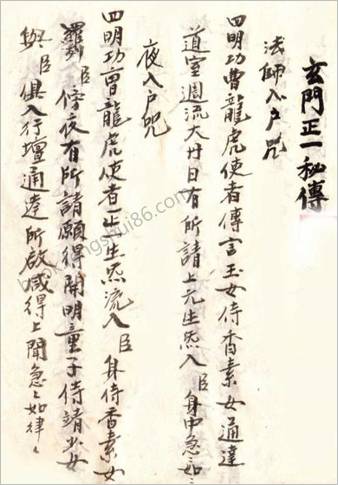 玄門正一秘傳
法師入戶咒
四明功曹龍虎使者傳言玉女侍香素女通達
道室週流大廾日有所請上元生炁入臣身中急〻如〻
夜入戶咒
四明功曹龍虎使者正一生炁流入臣身侍香素女
羅列臣傍夜有所請願得開明童子侍靖少女
與臣俱入行壇通達所啟咸得上聞急〻如律〻